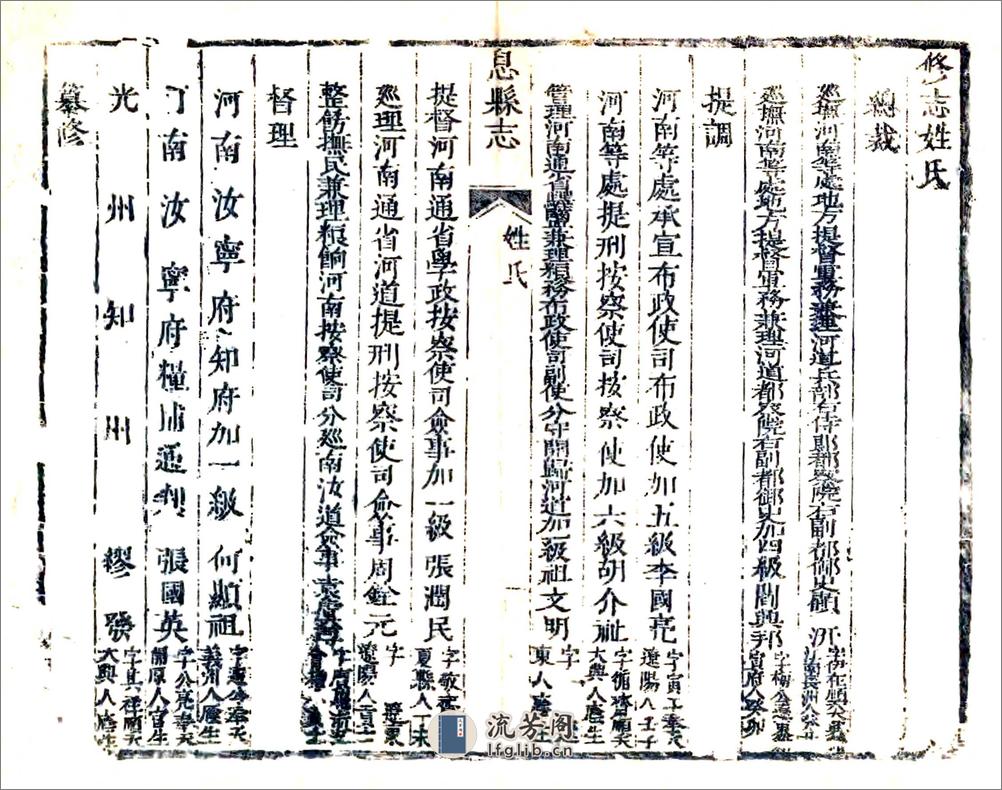 修志姓氏
總裁
巡撫河南等處地方提督軍務兼理河道兵部右侍郎都察院右副都御史顧汧
巡撫河南等處地方提督軍務兼理河道都察院右副都御史加四級閻興邦
提調
河南等處承宣布政使司布政使加五級李國亮 字寅 奉天遼陽人壬子
河南等處提刑按察使司按察使加六級胡介祉 字循齋順天大興人廕生
管理河南通省鹽兼理糧務布政使司副使分守開歸河道加級祖文明 字
息縣志
姓氏
提督河南通省學政按察使司僉事加一級張潤民 字敬 夏縣人丁未
巡理河南通省河道提刑按察使司僉事周銓元 字 遼東遼陽人貢士
整飭撫民兼理糧餉河南按察使司分巡南汝道僉事
督理
河南汝寧府知府加一級何顯祖 字 公奉天義州人廕生
河南汝寧府糧捕通判張國英 字公亮奉天開原人官生
光州知州繆發 字其祥順天大興人廕生
纂修
流芳阁
lfglib.cn